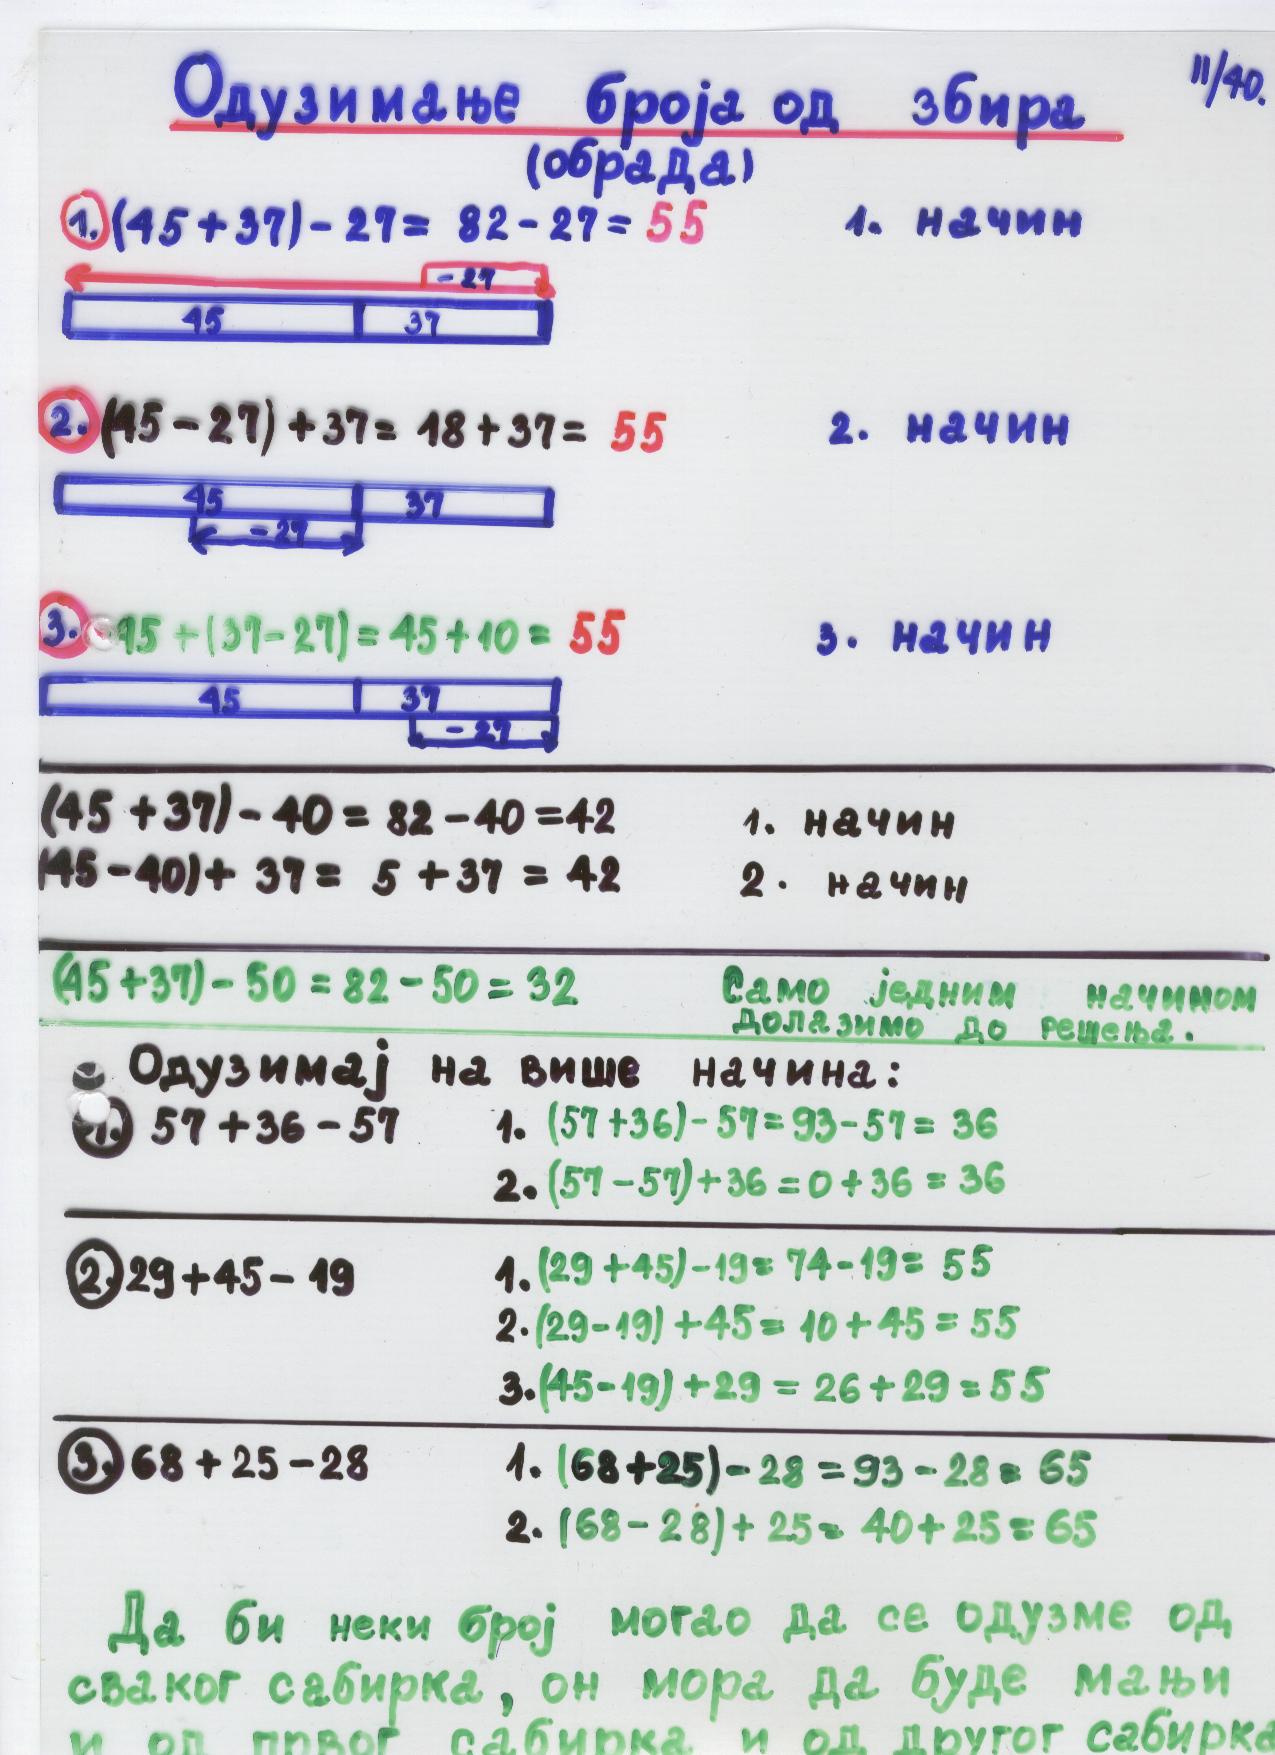 II/40.
Одузимање броја од збира
(обрада)
1. (45+37)-27= 82-27=55 1. начин
-27
45 37
2. (45-27)+37= 18+37= 55 2. начин
45 37
-27
3. 45+(37-27)=45+10= 55 3. начин
45 37
-27
(45+37)-40=82-40=42 1. начин
(45-40)+37= 5+37=42 2. начин
(45+37)-50=82-50=32 Само једним начином
долазимо до решења.
Одузимај на више начина:
1. 57+36-57 1. (57+36)-57=93-57=36
2. (57-57)+36=0+36=36
2. 29+45-19 1. (29+45)-19=74-19=55
2. (29-19)+45=10+45=55
3. (45-19)+29=26+29=55
3. 68+25-28 1. (68+25)-28=93-28=65
2. (68-28)+25=40+25=65
Да би неки број могао да се одузме од
сваког сабирка, он мора да буде мањи
и од првог сабирка и од другог сабирка